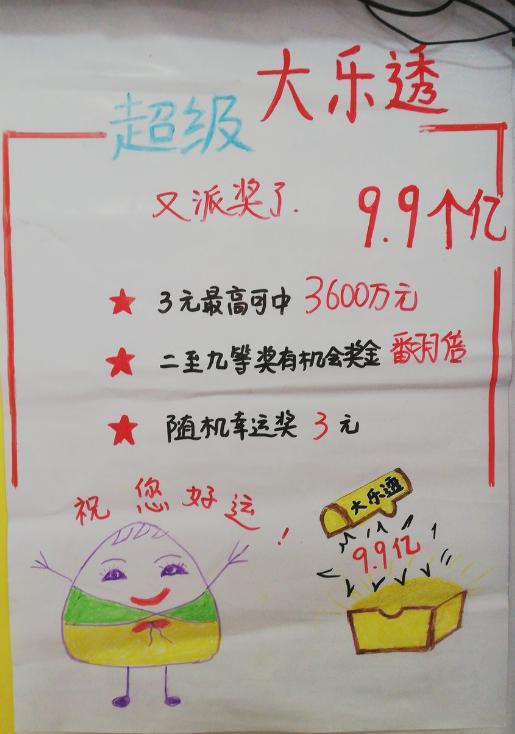 超级大乐透
又派奖了.
9.9个亿
★ 3元最高可中 3600万元
★ 二至九等奖有机会奖金 翻倍
★ 随机幸运奖 3元
祝您好运!
大乐透
9.9亿